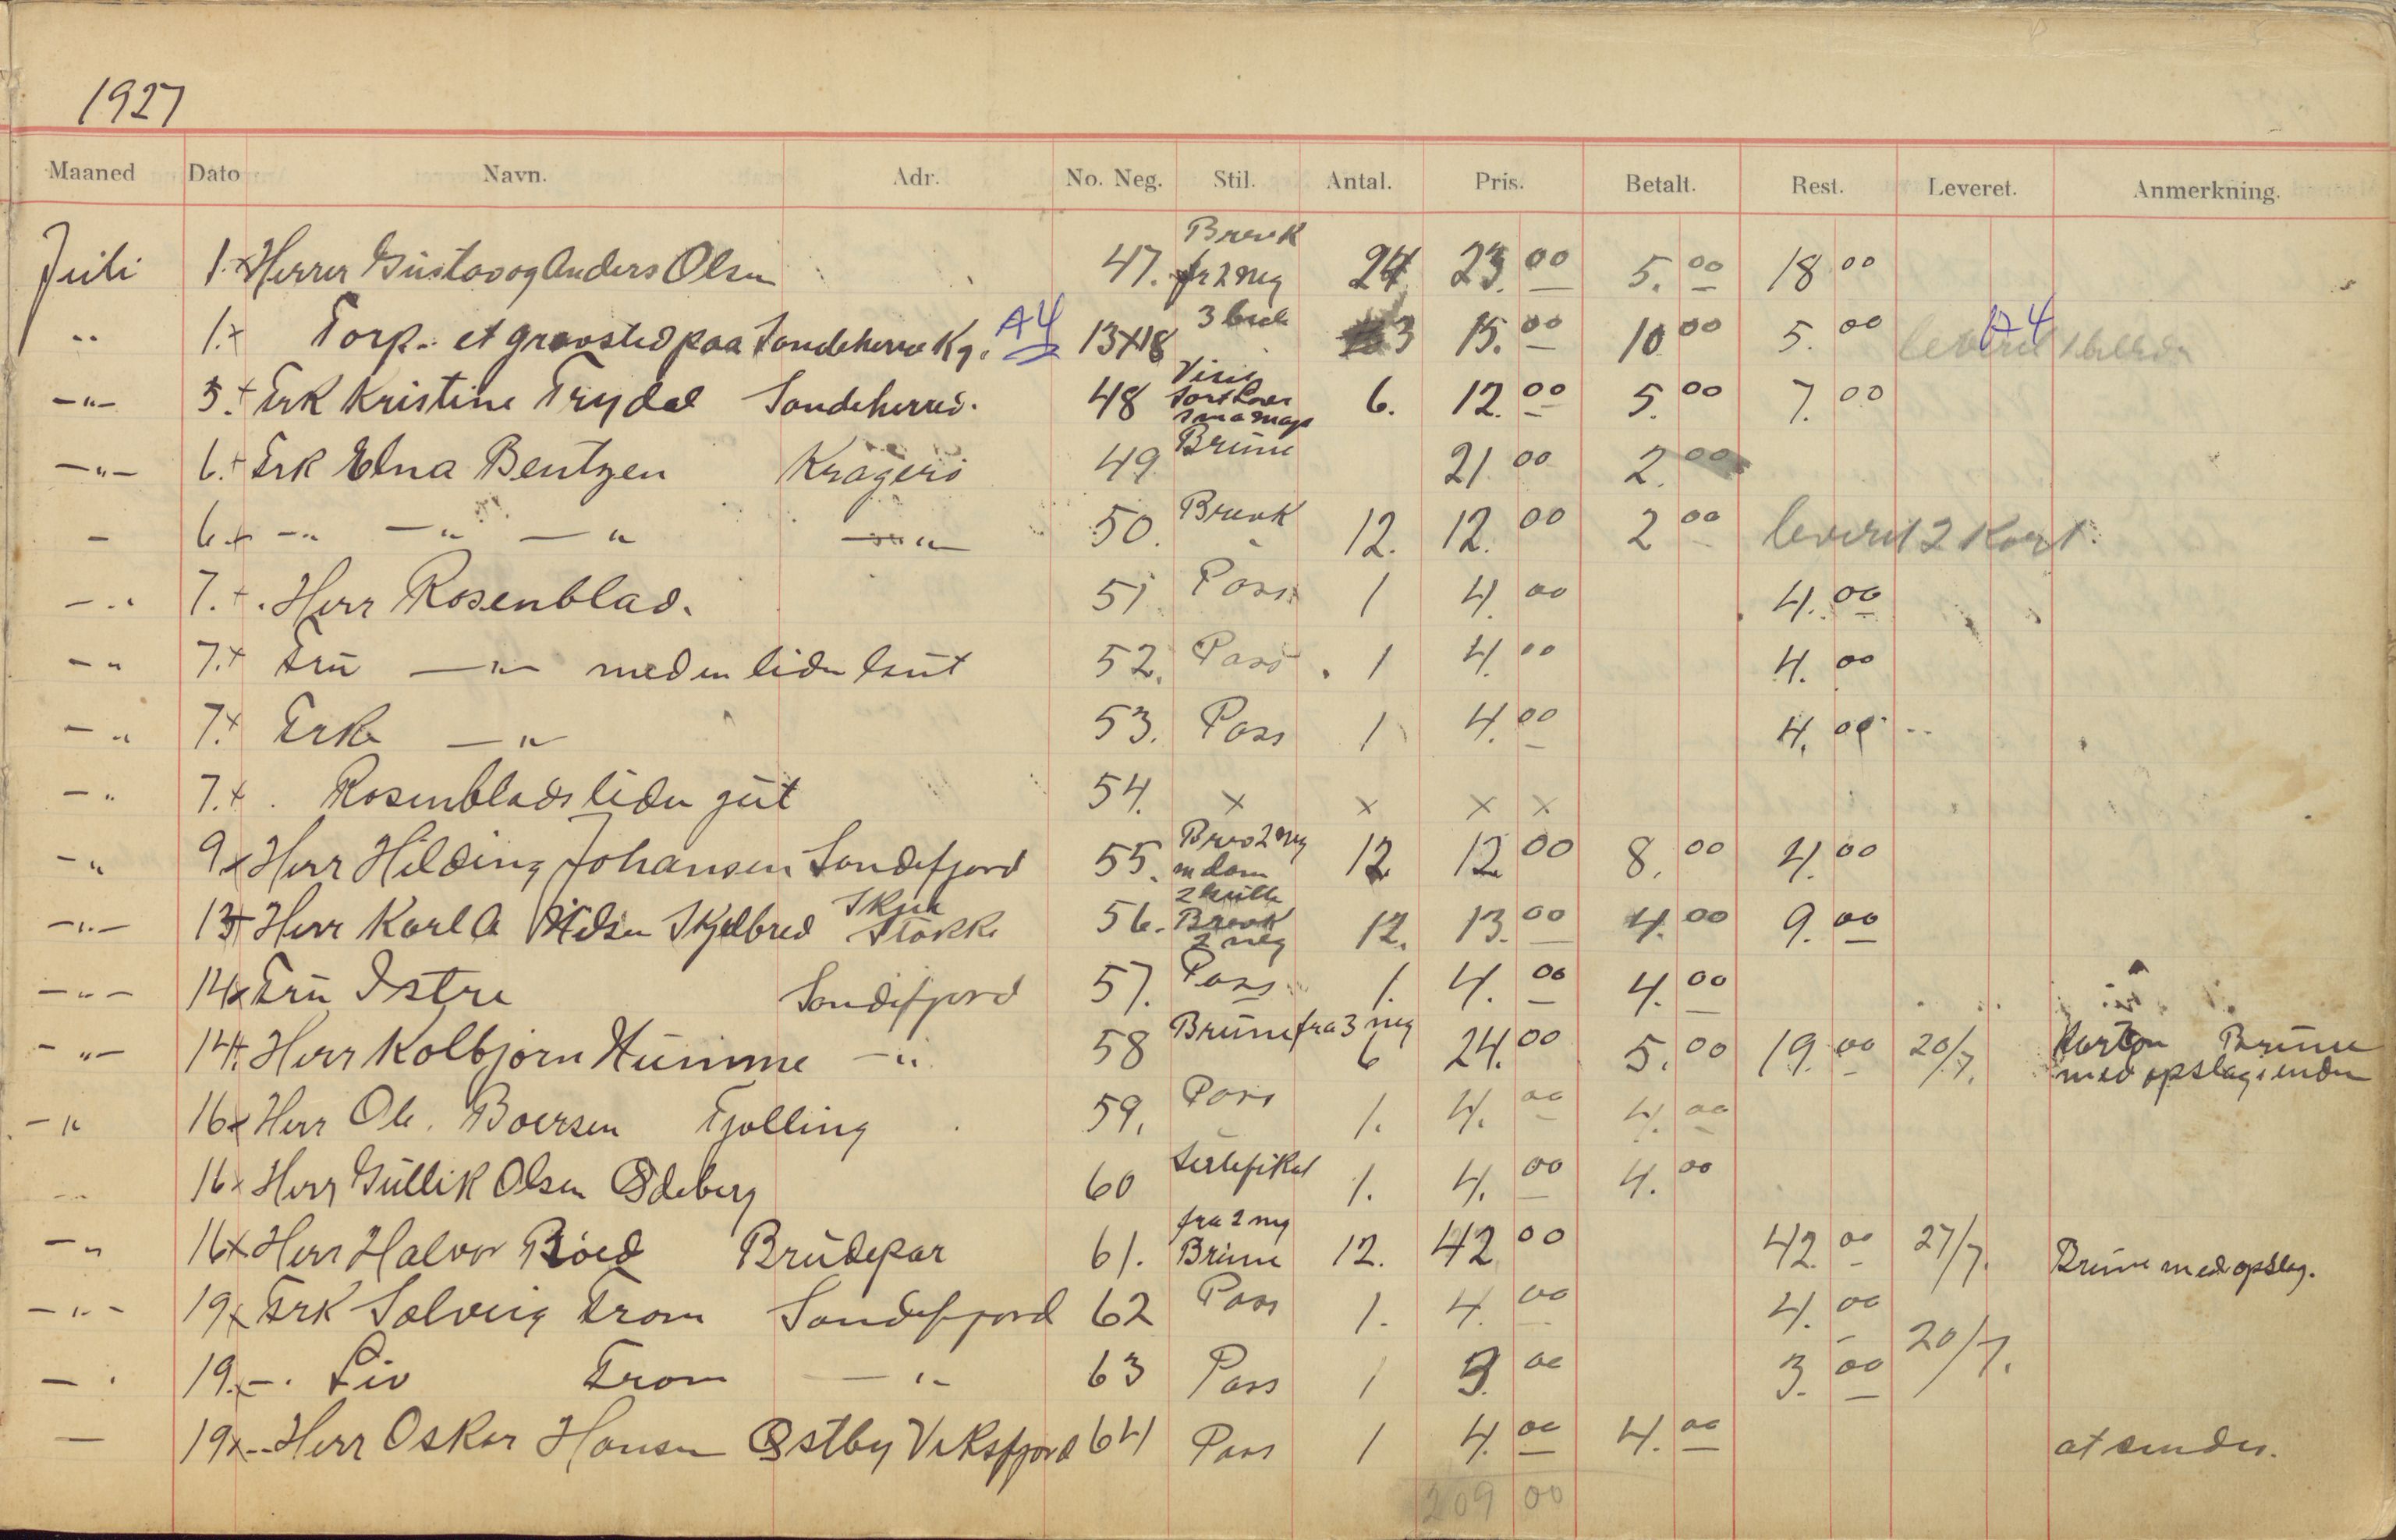 1927
Maaned Dato Navn. Adr. No. Neg. Stil. Antal. Pris. Betalt. Rest. Leveret. Anmerkning.
Juli 1.x Herrer Gustav og Anders Olsen 47. Brevk fr 2 neg 24 23.00 5.00 18 00
" 1.x Torp. et gravsted paa Sandeherre Kg. A4 13x18 3 3 15.00 10 00 5.00 A4 leveret
-"- 5.+ Frk Kristine Trydal Sandeherred. 48 Visit 6. 12.00 5.00 7.00
-"- 6.+ Frk Elna Bentzen Kragerö 49 Brune 21 00 2.00
- 6.+ -" -" -" -"- 50. Brevk 12. 12.00 2 00 leveret 2 Kort.
-" 7.+ Herr Rosenblad. 51 Pass 1 4.00 4.00
-" 7.+ Fru -"- med en liden gut 52. Pass 1 4.00 4.00
-" 7.x Frk -"- 53. Pass 1 4.00 4.00
-" 7.x Rosenblads liden gut 54. x x x x
-" 9x Herr Hilding Johansen Sandefjord 55. Brev 2 neg 12 12 00 8.00 4.00
-"- 13+ Herr Karl A Nilsen Skjelbred Stokke 56. Brevk 2 neg 12. 13.00 4.00 9.00
-"- 14x Fru Istre Sandefjord 57. Pass 1. 4.00 4.00
-"- 14+. Herr Kolbjörn Humme -" 58 Brune fra 3 neg 6 24.00 5.00 19.00 20/7. Karton Brune
med opslag i enden
-" 16x Herr Ole. Boersen Tjölling 59. Pass 1. 4.00 4.00
-" 16x Herr Gullik Olsen Ödeberg 60 Sertefikat 1. 4.00 4.00
-" 16x Herr Halvor Böed Brudepar 61. fra 2 neg Brune 12. 42 00 42.00 27/7. Brune med opslag.
-"- 19x Frk Solveig From Sandefjord 62 Pass 1. 4.00 4.00
- " 19.- Liv From -"- 63 Pass 1 3.00 3.00 20/7.
- 19x-- Herr Oskar Hansen Östby Viksfjord 64 Pass 1 4.00 4.00 at sendes.
209 00